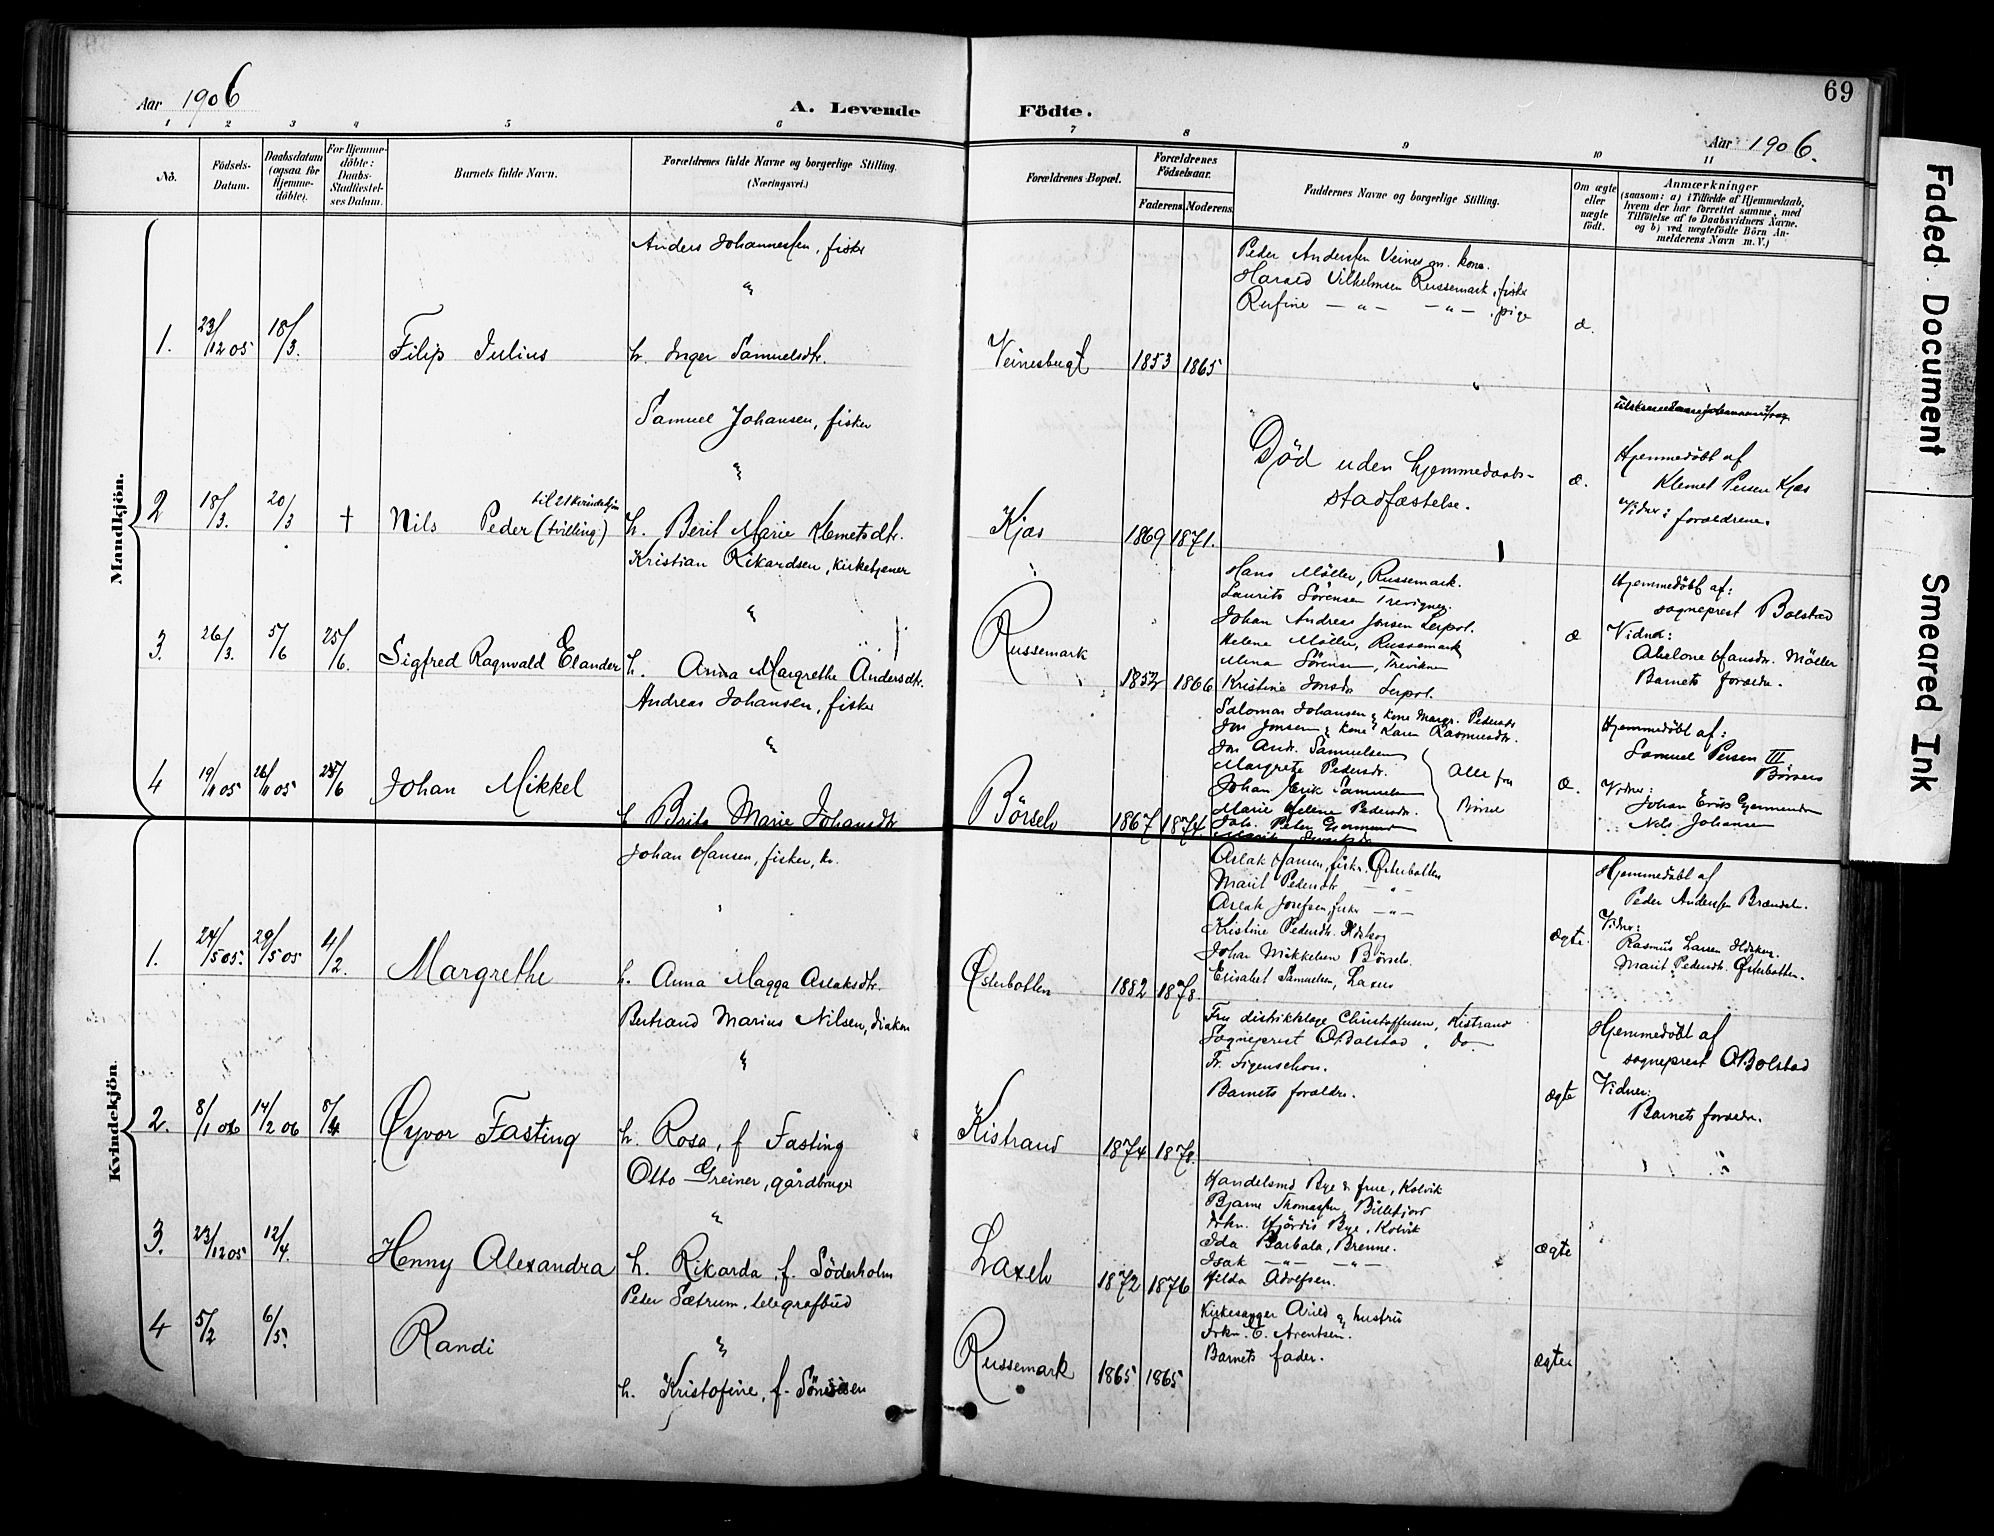 69
Aar 1906
A. Levende Födte.
Aar 1906.
1 2 3 4 5 6 7 8 9 10 11
No.
Födsels-
Datum.
Daabsdatum
(ogsaa for
Hjemme-
döbte).
For Hjemme-
döbte:
Daabs-
Stadfæstel-
ses Datum.
Barnets fulde Navn.
Forældrenes fulde Navne og borgerlige Stilling.
(Næringsvei.)
Forældrenes Bopæl.
Forældrenes
Födselsaar.
Faderens. Moderens.
Faddernes Navne og borgerlige Stilling.
Om ægte
eller
uægte
født.
Anmærkninger
(saasom: a) i Tilfælde af Hjemmedaab,
hvem der har forrettet samme, med
Tilföielse af to Daabsvidners Navne,
og b) ved uægtefödte Börn An-
melderens Navn m. V.)
Mandkjön.
1. 23/12 05 18/3. Filip Julius
Anders Johannessen, fisker
&
h. Inger Samuelsdtr.
Veinesbugt 1853 1865
Peder Anderssen Veines m. kone.
Harald Vilhelmsen Russemark, fisker
Rufine — " — — " —, pige
æ.
2 18/3. 20/3 † Nils Peder (tvilling)
til 21 kvindekjøn
Samuel Johansen, fisker
&
h. Berit Marie Klemetsdtr.
Kjæs 1869 1871.
Død uden hjemmedaabs-
stadfæstelse.
æ.
Hjemmedöbt af
Klemet Persen Kjæs
Vidner: forældrene.
3. 26/3. 5/6 25/6. Sigfred Ragnvald Elander
Kristian Rikardsen, kirketjener
&
h. Anna Margrethe Andersdtr.
Russemark 1852 1866
Hans Möller, Russemark.
Laurits Sörensen Trevignes.
Johan Andreas Jonsen Leipol.
Helene Möller, Russemark
Sörensen, Trevikne
Kristine Jonsdr Leipol.
æ
Hjemmedöbt af:
sogneprest Bolstad
Vidner:
Abelone Hansdr. Möller
Barnets forældre.
4 19/1 05 26/1 05 25/6 Johan Mikkel
Andreas Johansen, fisker
&
h Brita Marie Johansdtr
Börselv 1867 1874.
Salomon Johansen & kone Margr. Pedersdr
Jon Jonsen & kone Karen Rasmusdtr.
Jon Andr. Samuelsen
Margrete Pedersdr.
Johan Erik Samuelsen
Marie Helene Pedersdr.
Joh. Peter
Alle fra
Börselv
æ.
Hjemmedöbt af:
Samuel Persen III
Börselv
Vidner:
Johan Erik
Nils Johansen
Kvindekjön.
1. 24/5 05. 29/5 05 4/2. Margrethe
Johan Hansen, fisker, &
h. Anna Magga Aslaksdtr.
Österbotten 1882 1878.
Aslak Hansen, fisker, Österbotten
Marit Pedersdtr — " —
Aslak Josefsen, fisker — " —
Kristine Pedersdtr.
Johan Mikkelsen Börselv.
Elisabet Samuelsen, Laxelv
ægte.
Hjemmedöbt af
Peder Anderssen Brændelv.
Vidner:
Rasmus Larsen
Marit Pedersdtr. Österbotten.
2. 8/1 06 14/2 06 8/4 Øyvor Fasting
Bertrand Marius Nilsen, diakon
&
h. Rosa, f Fasting
Kistrand 1874 1878.
Fru distriktslæge Christoffersen, Kistrand
Sogneprest O. Bolstad, do.
Fr. Figenschou.
Barnets forældre.
ægte
Hjemmedöbt af
sogneprest O Bolstad
Vidner:
Barnets forældre.
3. 23/12 05 12/4. Henny Alexandra
Otto Greiner, gårdbruger
&
h. Rikarda, f. Söderholm
Laxelv 1872 1876
Handelsmd Bye & frue, Kolvik
Bjarne Thomassen, Billefjord
Frkn. Hjördis Bye, Kolvik
Ida Barbala, Brenne.
Isak — " — — " —
Hilda Adolfsen.
ægte
4 5/2 6/5. Randi
Peder Sætrum, telegrafbud
&
h. Kristofine, f. Sönissen
Russemark 1865 1865
Kirkesanger Arild & hustru
Frkn. E. Arentsen.
Barnets fader.
ægte
Faded Document
Smeared Ink